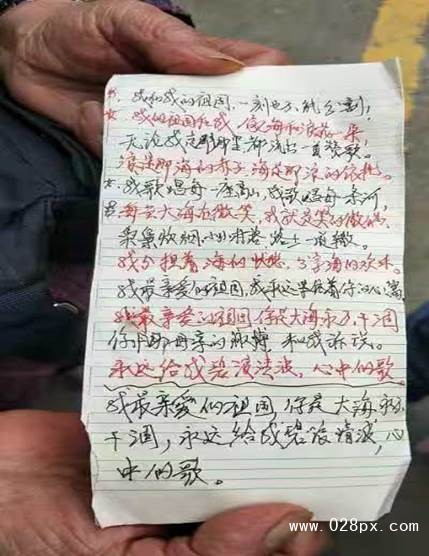 我和我的祖国,一刻也不能分割,
我的祖国和我,像海和浪花一朵
无论我走到哪里都流出一首赞歌。
浪是那海的赤子,海是那浪的依托
我歌唱每一座高山,我歌唱每一条河,
每当大海在微笑,我就是笑的漩涡,
袅袅炊烟,小小村落 路上一道辙。
我分担着海的忧愁,分享海的欢乐。
我最亲爱的祖国,我永远紧依着你的心窝
我最亲爱的祖国你是大海永不干涸
你用那母亲的脉搏 和我诉说。
永远给我碧浪清波,心中的歌
我最亲爱的祖国,你是大海永不
干涸,永远给我碧浪清波,心
中的歌。
www.028px.com